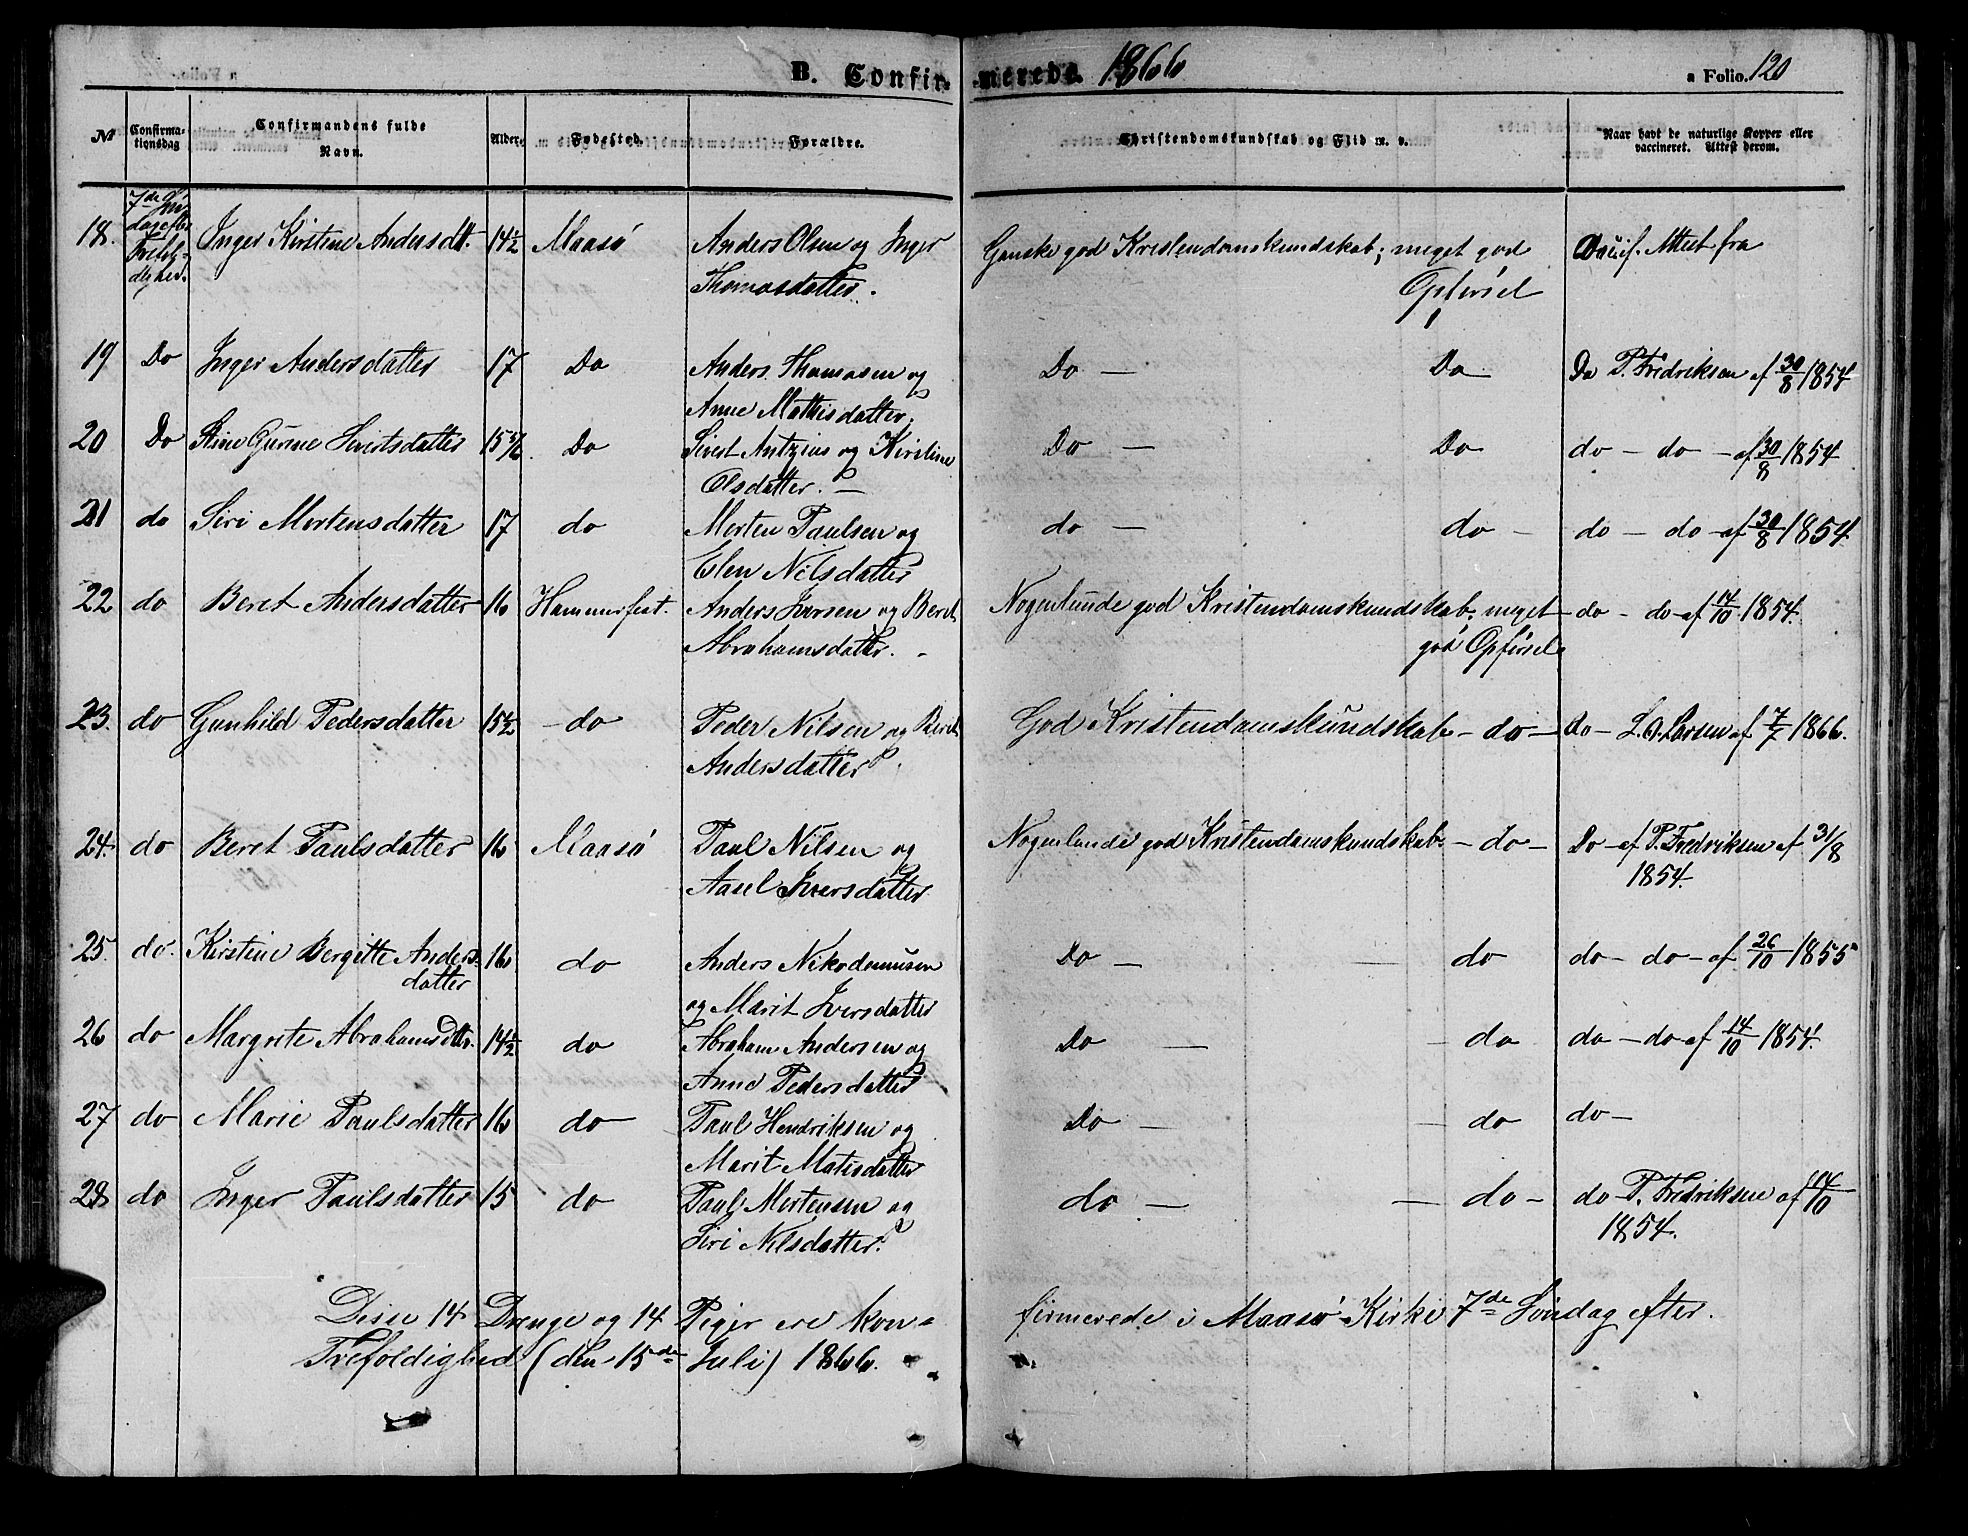 B. Confirmerede. 1866
a Folio. 120
№ Confirmationsdag Confirmandens fulde Navn. Alder. Fødested. Forældre. Christendomskundskab og Flid m. v. Naar havt de naturlige Kopper eller vaccineret. Attest derom.
18. 7de Søndag efter Trefoldighed. Inger Kirstine Andersdtt. 14½ Maasø Anders Olsen og Inger Thomasdatter. Ganske god Kristendomskundskab; meget god Opførsel Vaccif. Attest fra
19 Do Inger Andersdatter 17 Do Anders Thomasen og Anne Mathisdatter. Do — Do Do P. Fredriksen af 30/8 1854
20 Do Stine Gurine Sivertsdatter 15 Do Sivert Antzius og Kirstine Olsdatter. — Do — Do do — do — af 30/8 1854
21 do Siri Mortensdatter 17 do Morten Paulsen og Elen Nilsdatter do — do — do — do — af 30/8 1854.
22 do Beret Andersdatter 16 Hammerfest. Anders Iversen og Beret Abrahamsdatter. Nogenlunde god Kristendomskundskab, meget god Opførsel do — do af 14/10 1854.
23. do Gunhild Pedersdatter 15½ — do Peder Nilsen og Beret Andersdatter. God Kristendomskundskab — do — Do — L. O. Larsen af 7/7 1866.
24. do Beret Paulsdatter 16 Maasø Paul Nilsen og Aasel Iversdatter Nogenlunde god Kristendomskundskab — do — Do — af P. Fredriksen af 31/8 1854.
25. do. Kirstine Bergitte Andersdatter 16 do Anders Nikodemusen og Marit Iversdatter Do — do do — do — af 26/10 1855
26 do Margrete Abrahamsdtter. 14½ do Abraham Andersen og Anne Pedersdatter Do — do do — do af 14/10 1854.
27 do Marie Paulsdatter 16 do Paul Hendriksen og Marit Matisdatter Do — do do —
28 do Inger Paulsdatter 15 do Paul Mortensen og Siri Nilsdatter. do — do — do P. Fredriksen af 14/10 1854.
Disse 14 Drenge og 14 Piger ere konfirmerede i Maasø Kirke 7de Søndag efter
Trefoldighed (den 15de Juli) 1866.